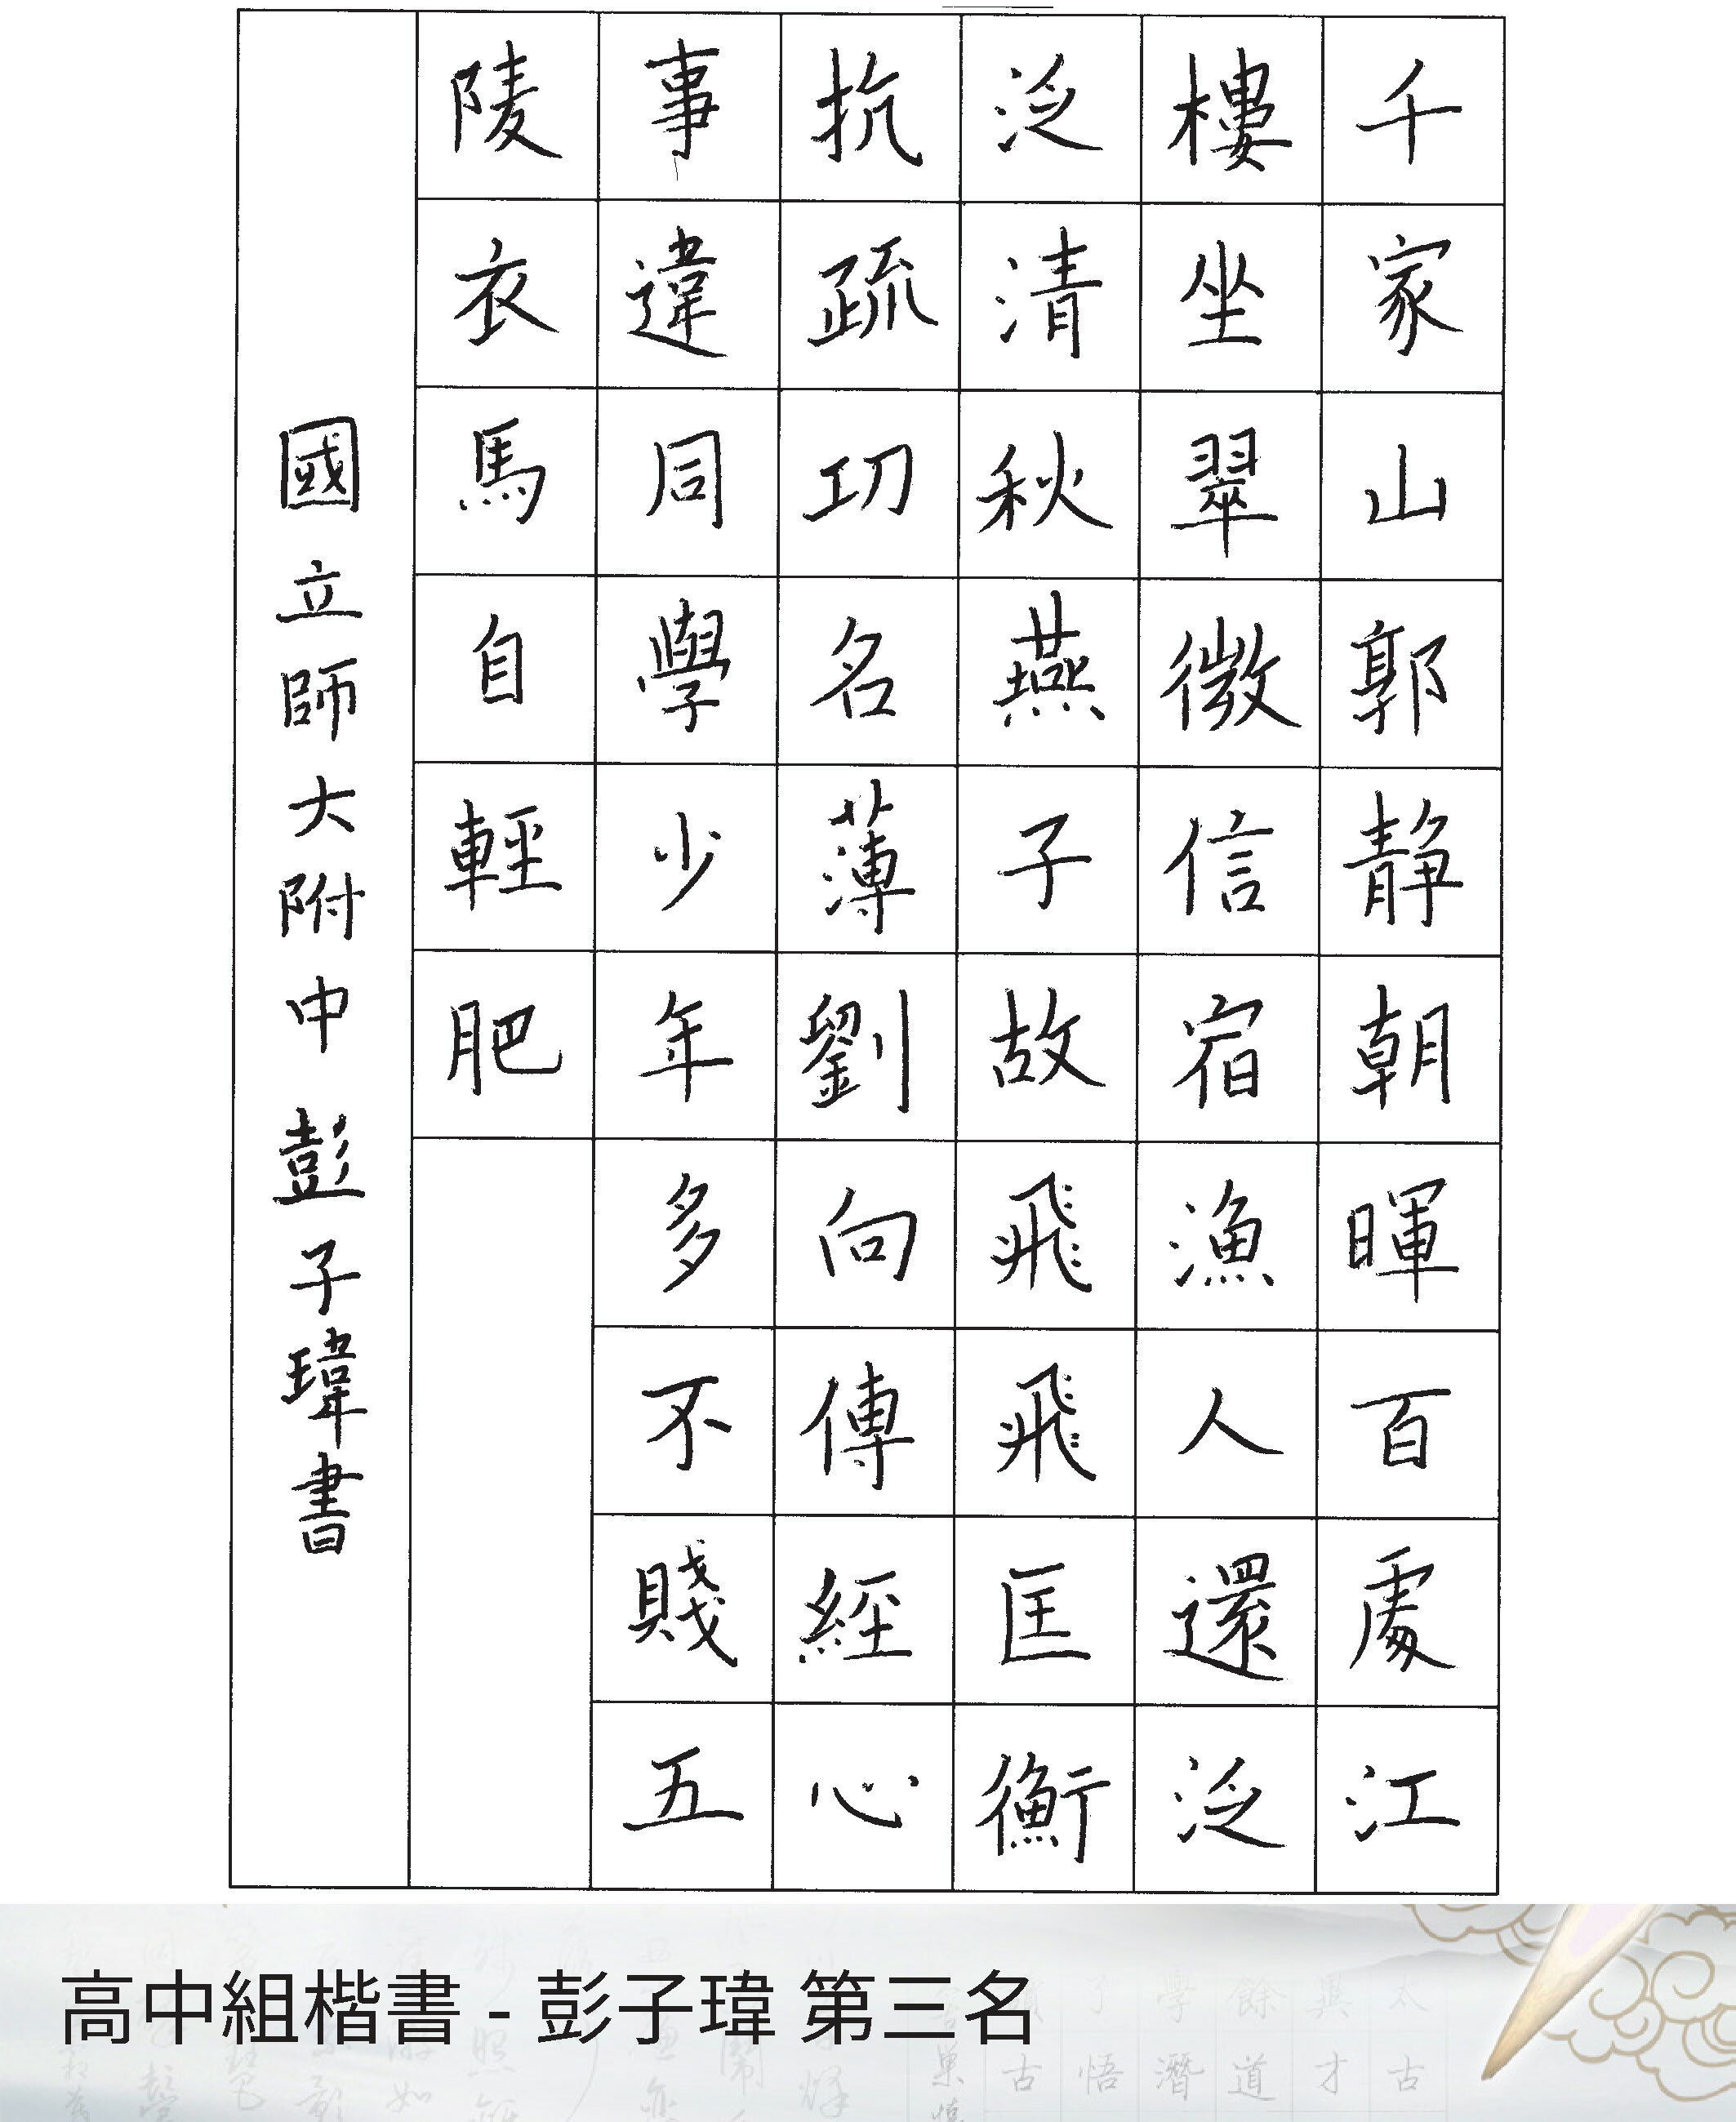 千家山郭靜朝暉百處江
樓坐翠微信宿漁人還泛
泛清秋燕子故飛飛匡衡
抗疏功名薄劉向傳經心
事違同學少年多不賤五
陵衣馬自輕肥
國立師大附中 彭子瑋書
高中組楷書 - 彭子瑋 第三名